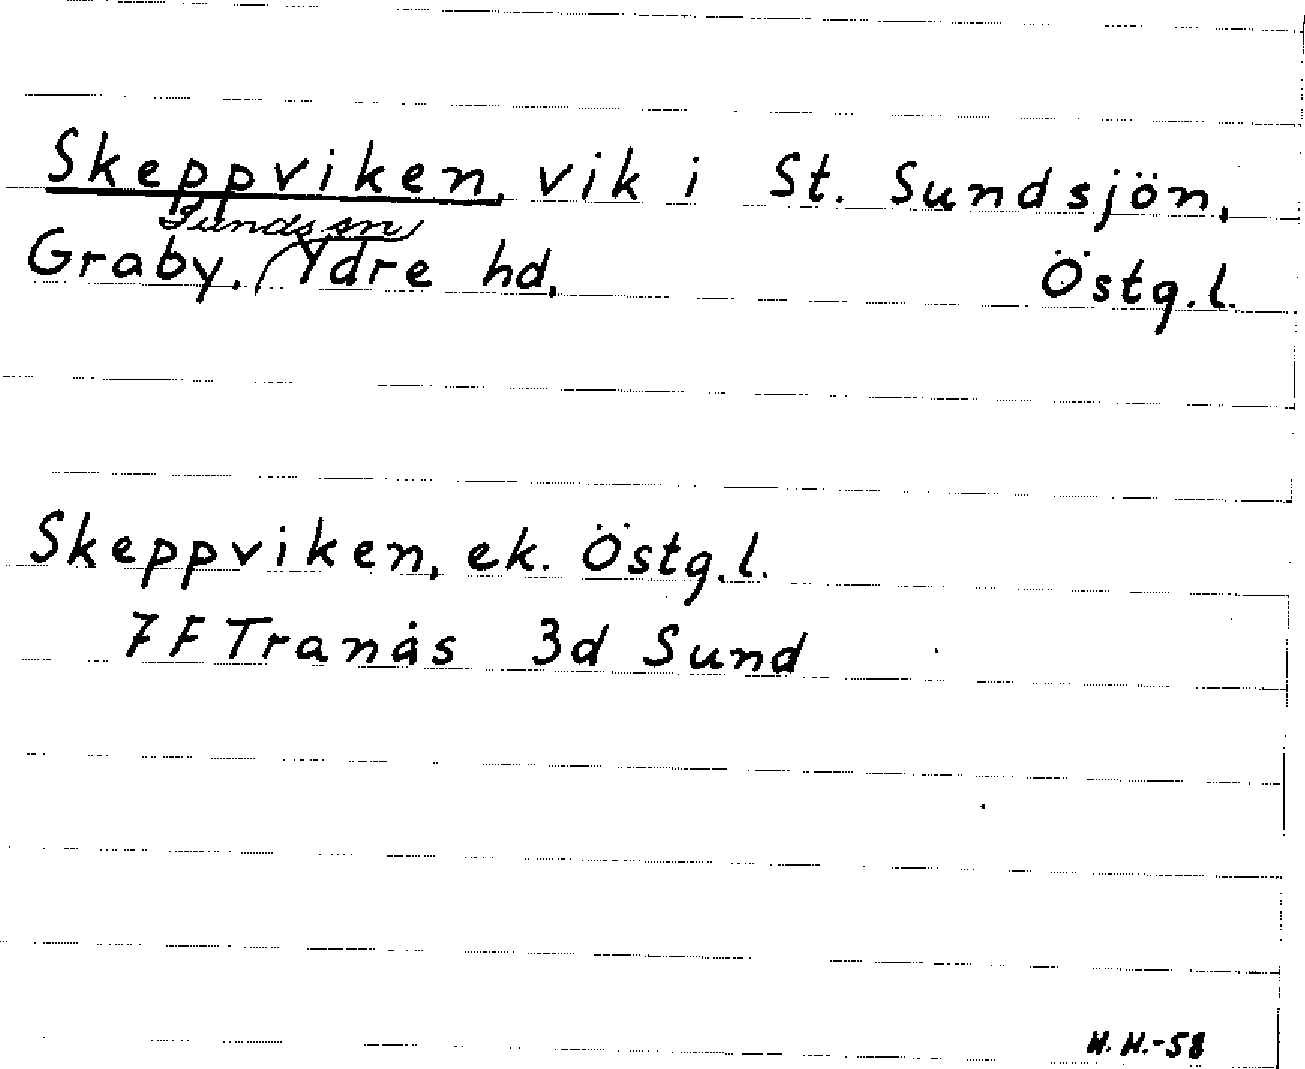 Skeppviken, vik i St. Sundsjön,
Sunds sn
Graby, Ydre hd, Östg.l.
Skeppviken, ek. Östg.l.
7F Tranås 3d Sund
H.H.-58